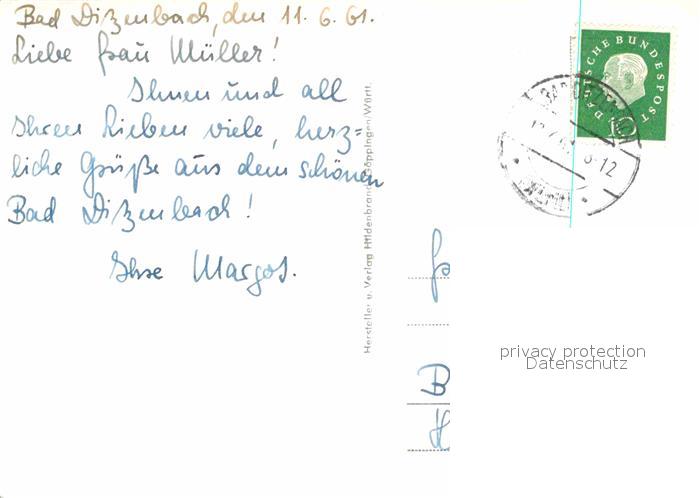 Bad Ditzenbach, den 11. 6. 61.
Liebe Frau Müller!
Ihnen und all
Ihren Lieben viele, herz=
liche Grüße aus dem schönen
Bad Ditzenbach!
Ihre Margot.
Hersteller u. Verlag Hildenbrand, Göppingen/Württ.
DEUTSCHE BUNDESPOST
10
BAD
8-12
Fr
B
H
privacy protection
Datenschutz